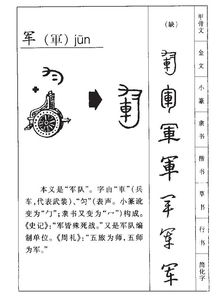 军（軍）jūn
本义是“军队”。字由“車”（兵
车，代表武装）、“勻”（表声。小篆讹
变为“勹”；隶书又变为“冖”）构成。
《史记》：“军皆殊死战。”又是军队编
制单位。《周礼》：“五旅为师，五师
为军。”
（缺）
軍
軍
軍
軍
军
軍
军
甲骨文
金文
小篆
隶书
楷书
草书
行书
简化字